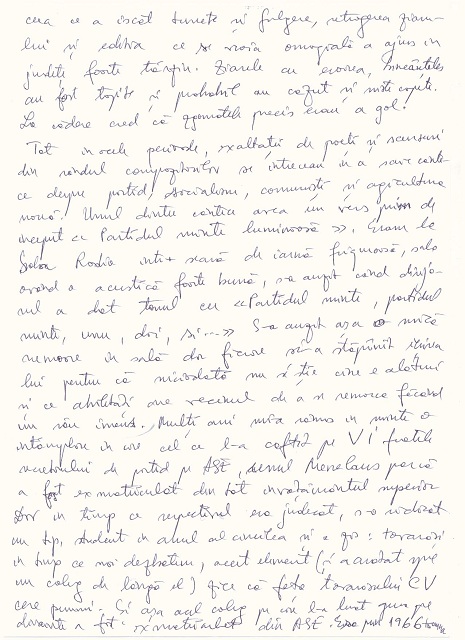 ceea ce a iscat tunete și fulgere, retragerea ziaru-
lui și editia ce se vroia omagială a ajuns in
județ foarte târziu. Ziarele cu eroarea,
au fost topite și probabil au căzut și niste capete.
La cădere cred că zgomotele precis erau a gol!
Tot in acele perioade, exaltații de poeti și
din rândul compozitorilor se intreceau in a scrie cante-
ce despre partid, socialism, comuniști și agricultura
nouă. Unul dintre cantece avea un vers de
inceput << Partidul minte luminoasă >>. Eram la
Sala Radio intr-o seară de iarnă friguroasă, sala
avand o acustică foarte bună, s-a auzit cand dirijo-
rul a dat tonul cu << Partidul minte, partidul
minte, unu, doi, și...>> S-a auzit așa o mică
rumoare in sală dar fiecare si-a stăpinit
lui pentru că niciodată nu știe cine e alături
și ce abilități are vecinul de a te remarca făcand
un rău imens. Multi ani mi-a rămas in minte o
intâmplare in care cel ce l-a caftit pe VI fratele
secretarului de partid pe ASE, Menelaus parcă
a fost exmatriculat din tot invatamântul superior
Dar in timp ce respectivul era judecat, s-a ridicat
un tip, student in anul al cincilea și a zis: tovarasi
in timp ce noi dezbatem, acest element (și a aratat spre
un coleg de lângă el) zice că fata tovarasului CV
cere pumni. Și așa acel coleg pe care l-a luat gura pe
dinainte a fost exmatriculat din ASE. Era prin 1966